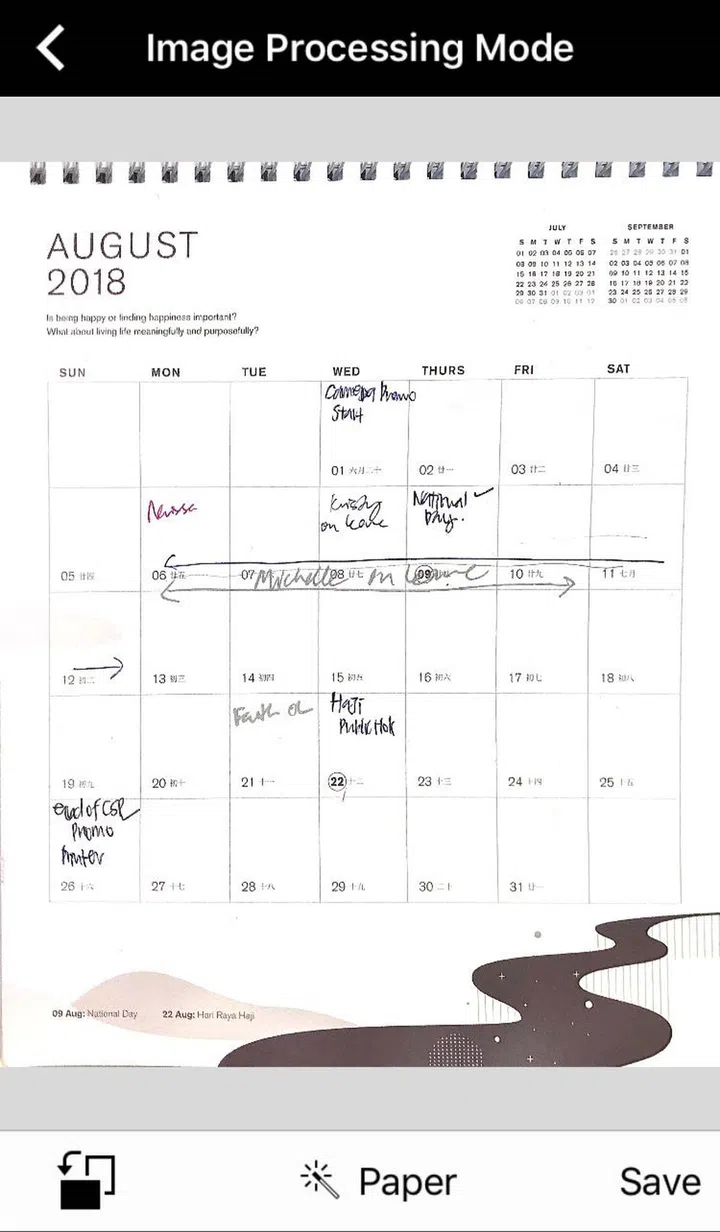 Image Processing Mode
AUGUST
2018
Is being happy or finding happiness important?
What about living life meaningfully and purposefully?
JULY
S M T W T F S
01 02 03 04 05 06 07
08 09 10 11 12 13 14
15 16 17 18 19 20 21
22 23 24 25 26 27 28
29 30 31 01 02 03 04
SEPTEMBER
S M T W T F S
26 27 28 29 30 31 01
02 03 04 05 06 07 08
09 10 11 12 13 14 15
16 17 18 19 20 21 22
23 24 25 26 27 28 29
30 01 02 03 04 05 06
SUN MON TUE WED THURS FRI SAT
Promo
Start
01 02 廿一 03 廿二 04 廿三
on leave
National
Day.
05 廿四 06 廿五 07 08 廿七 09 10 廿九 11 七月
Michelle on leave
12 初二 13 初三 14 初四 15 初五 16 初六 17 初七 18 初八
Faith OL
Haji
Public Hol
19 初九 20 初十 21 十一 22 十二 23 十三 24 十四 25 十五
end of
Promo
26 十六 27 十七 28 十八 29 十九 30 二十 31 廿一
09 Aug: National Day 22 Aug: Hari Raya Haji
Paper
Save